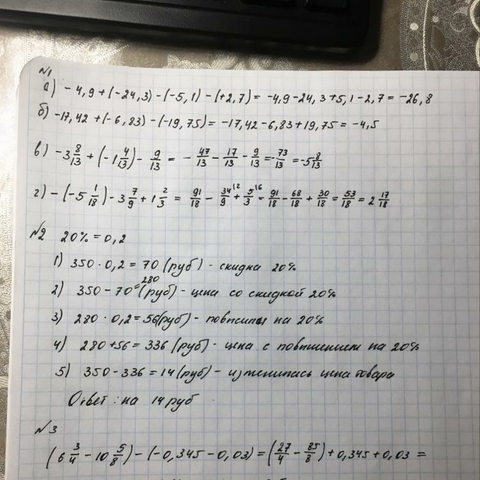 №1
а) -4,9+(-24,3)-(-5,1)-(+2,7)= -4,9-24,3+5,1-2,7= -26,8
б) -17,42+(-6,83)-(-19,75)= -17,42-6,83+19,75= -4,5
в) -3 8/13 + (-1 4/13) - 9/13 = - 47/13 - 17/13 - 9/13 = - 73/13 = -5 8/13
г) -(-5 1/18) - 3 7/9 + 1 2/3 = 91/18 - 34/9 + 5/3 = 91/18 - 68/18 + 30/18 = 53/18 = 2 17/18
№2 20%=0,2
1) 350·0,2=70(руб)-скидка 20%
2) 350-70=280(руб)-цена со скидкой 20%
3) 280·0,2=56(руб)- на 20%
4) 280+56=336(руб)-цена с повышением на 20%
5) 350-336=14(руб)-изменилась цена товара
Ответ: на 14 руб
№3
(6 3/4 - 10 5/8)-(-0,345-0,03)=(27/4 - 85/8)+0,345+0,03=